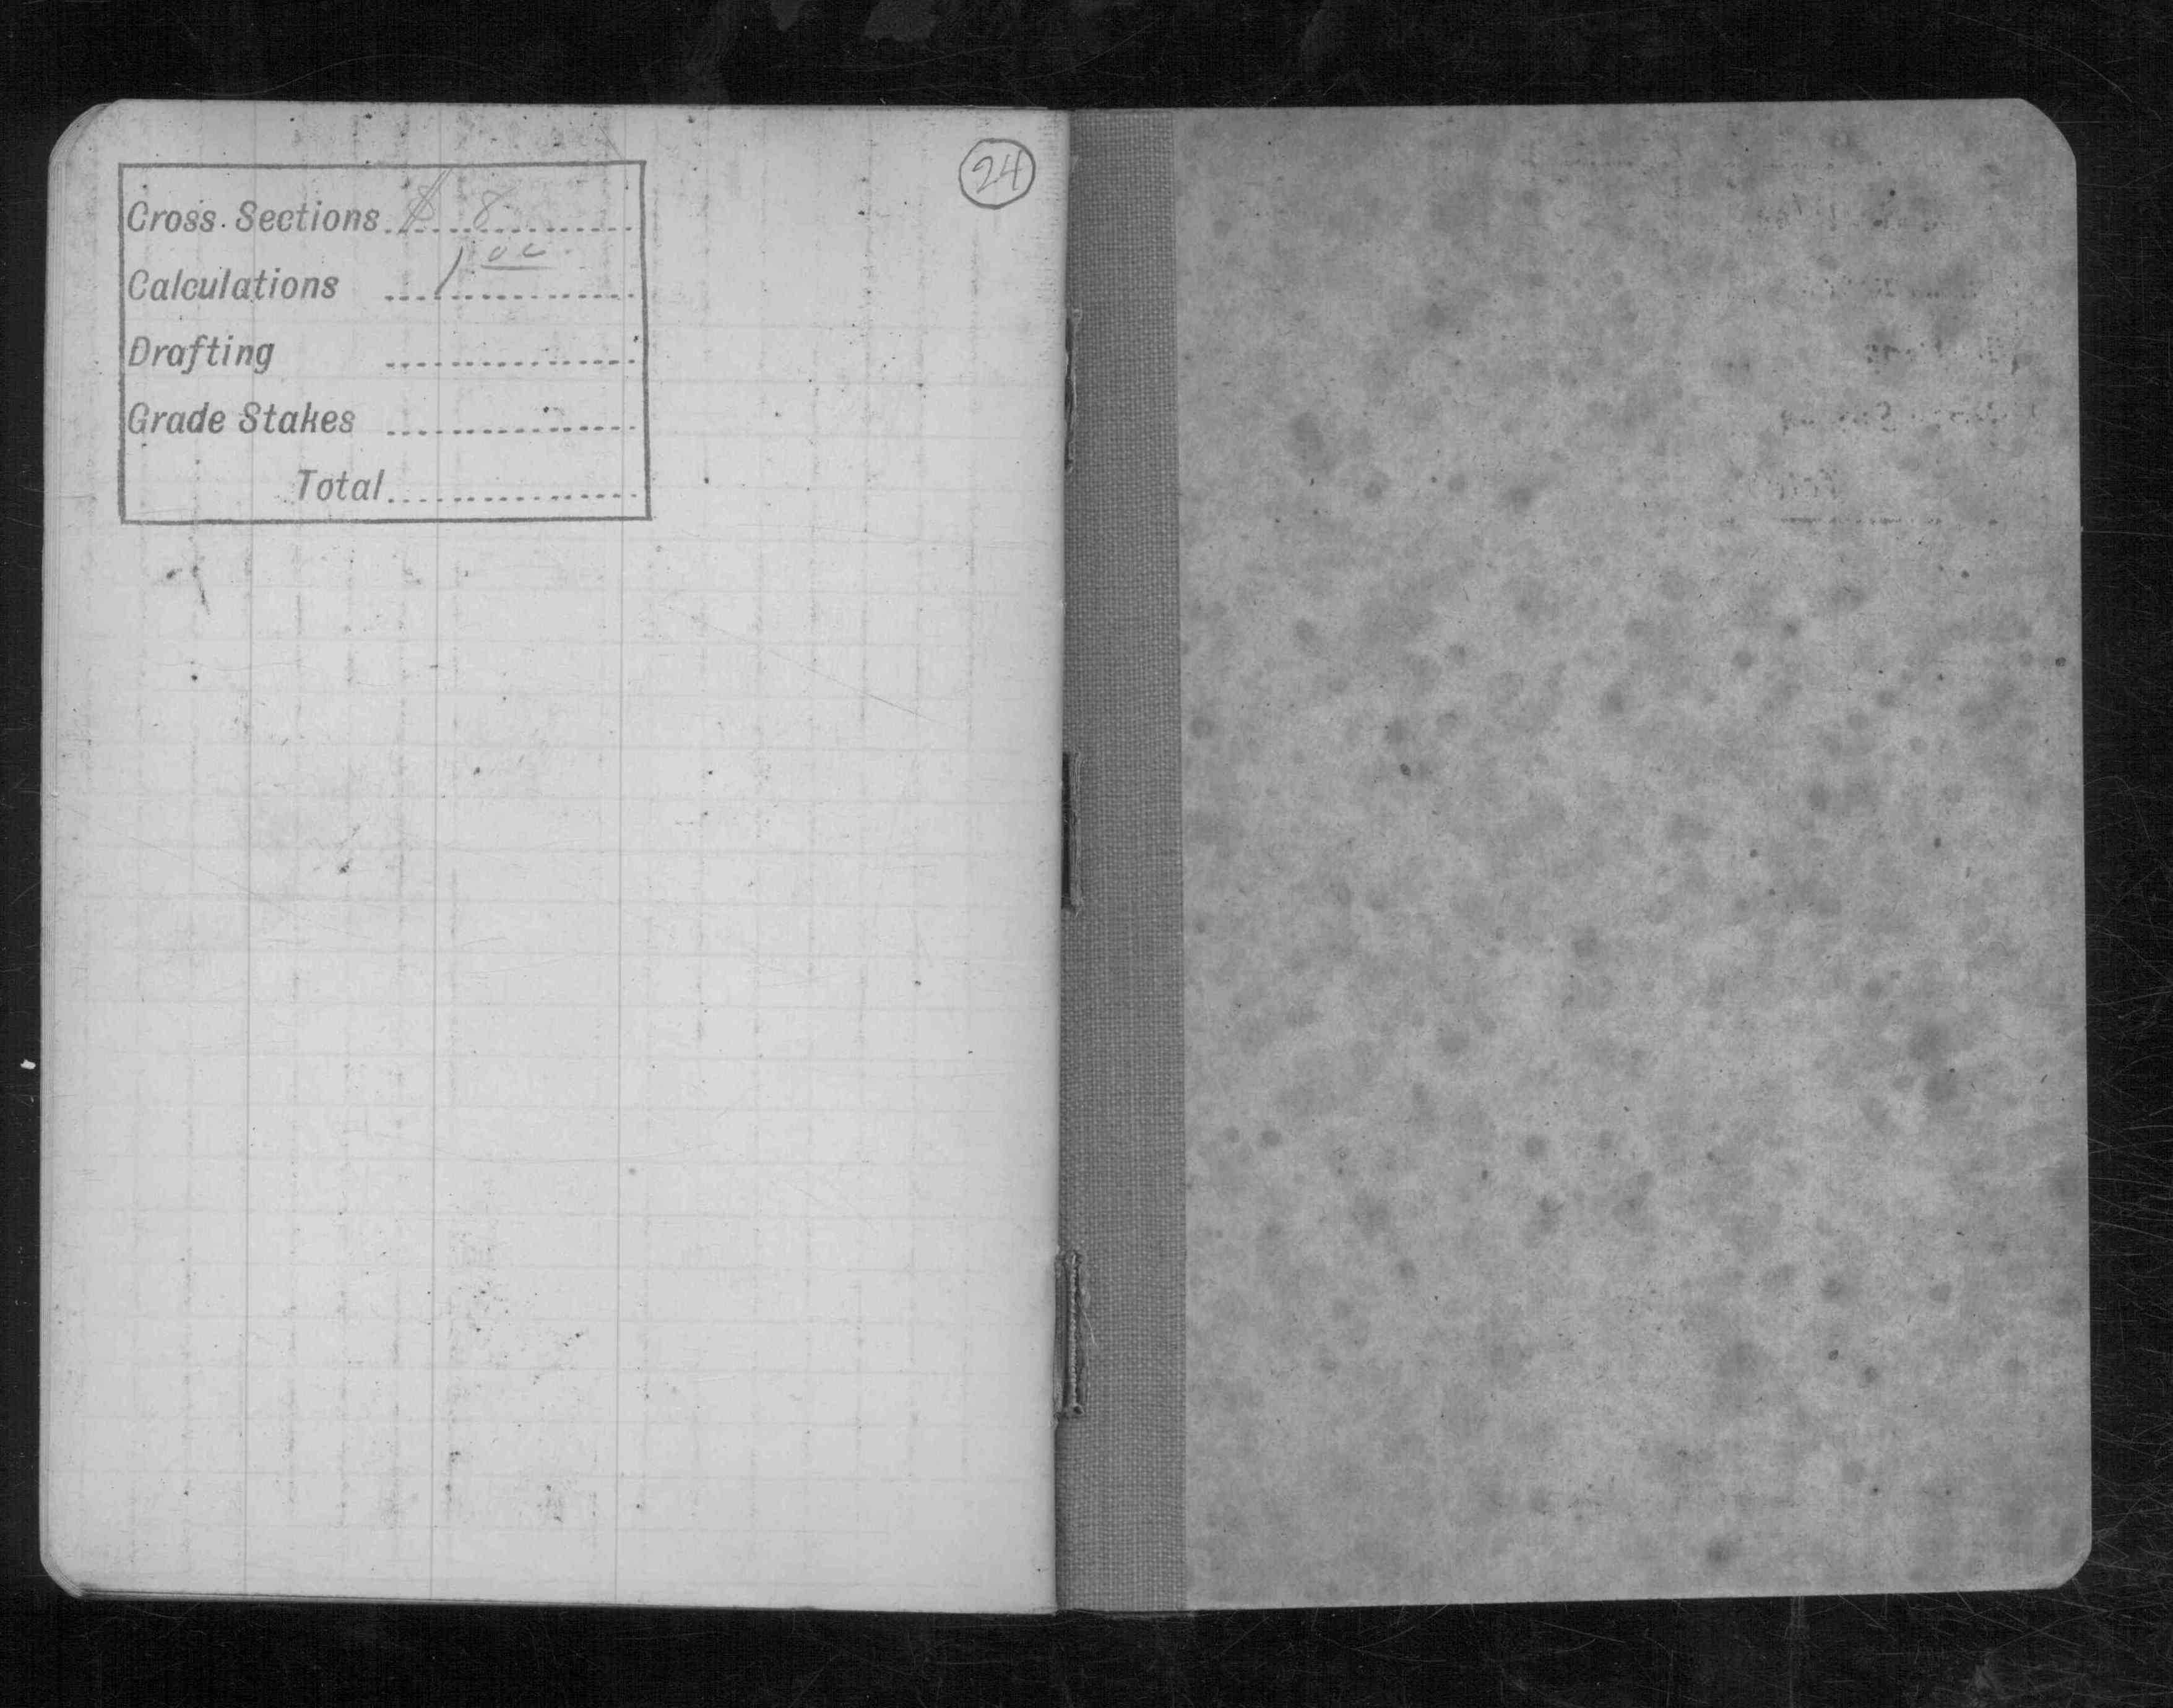 24
Cross Sections $ 8
Calculations 1.00
Drafting
Grade Stakes
Total